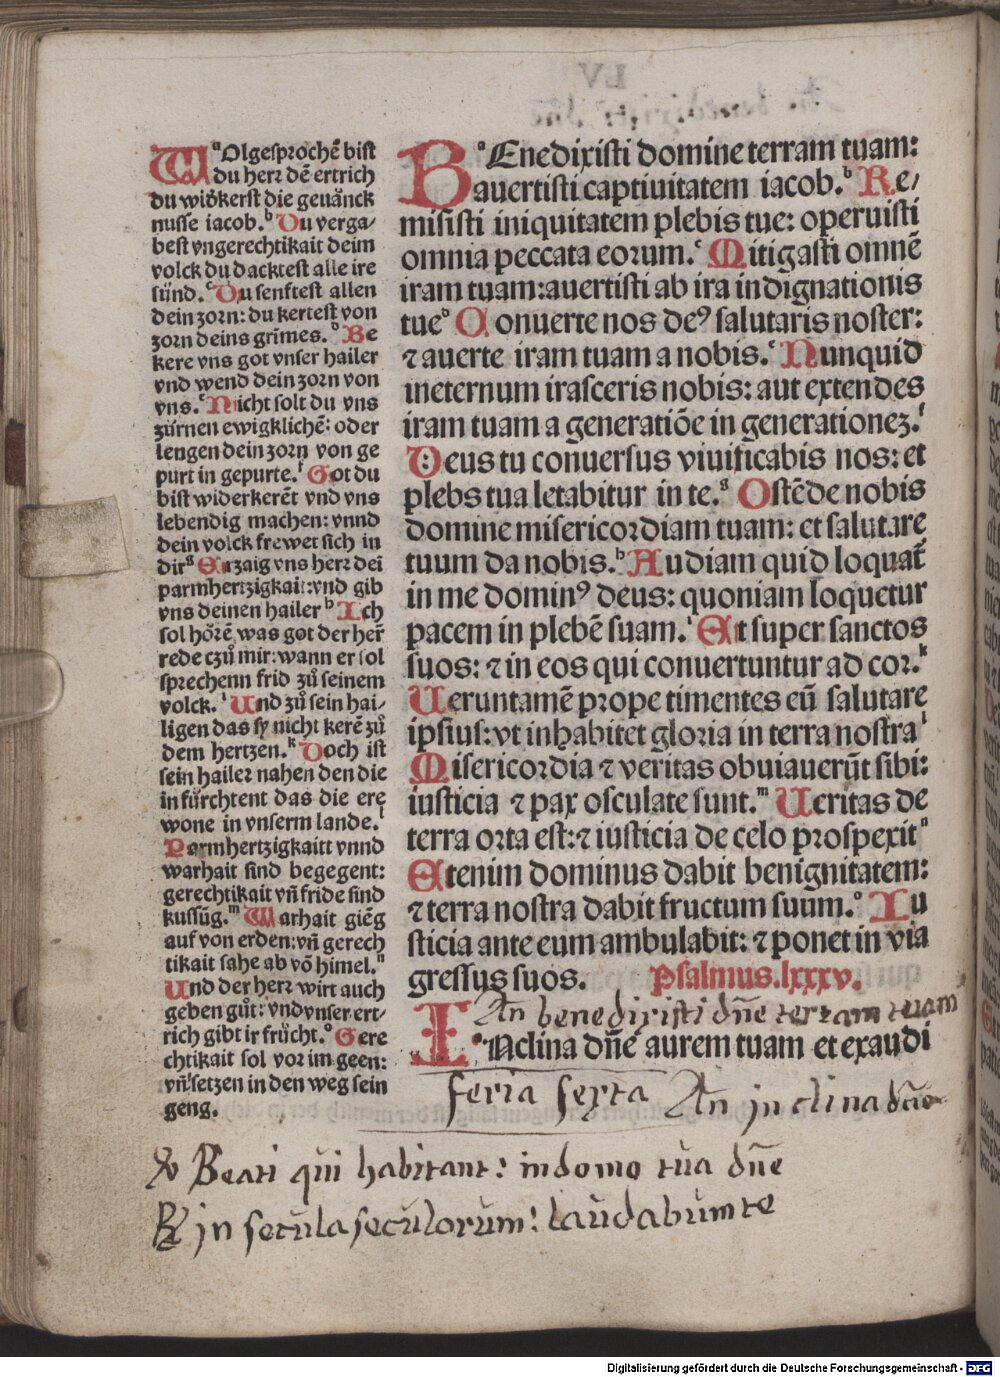 WᵃOlgesprochē bist
du herr dē ertrich
du widkerst die geuānck
nusse iacob.ᵇ Du verga⸗
best vngerechtikait deim
volck du dacktest alle ire
sünd.ᶜ Du senftest allen
dein zorn: du kertest von
zorn deins grimes.ᵈ Be
kere vns got vnser hailer
vnd wend dein zorn von
vns.ᵉ Nicht solt du vns
zürnen ewigklichē: oder
lengen dein zorn von ge
purt in gepurte.ᶠ Got du
bist widerkerēt vnd vns
lebendig machen: vnnd
dein volck frewet sich in
dirᵍ Erzaig vns herr dei
parmhertzigkait:vnd gib
vns deinen hailer ʰ Ich
sol hörē was got der her̄
rede czů mir: wann er sol
sprechenn frid zů seinem
volck.ⁱ Und zů sein hai⸗
ligen das sy nicht kerē zů
dem hertzen.ᵏ Doch ist
sein hailer nahen den die
in fürchtent das die ere
wone in vnserm lande.ˡ
Parmhertzigkaitt vnnd
warhait sind begegent:
gerechtikait vn̄ fride sind
kussūg.ᵐ Warhait giēg
auf von erden:vn̄ gerech
tikait sahe ab vō himel.ⁿ
Und der herr wirt auch
geben gůt: vnd vnser ert⸗
rich gibt ir frücht.ᵒ Gere
chtikait sol vor im geen:
vn̄ setzen in den weg sein
geng.
BᵃEnedixisti domine terram tuam:
auertisti captiuitatem iacob.ᵇ Re⸗
misisti iniquitatem plebis tue: operuisti
omnia peccata eorum.ᶜ Mitigasti omnē
iram tuam:auertisti ab ira indignationis
tueᵈ Conuerte nos deꝰ salutaris noster:
⁊ auerte iram tuam a nobis.ᵉ Nunquid
ineternum irasceris nobis: aut extendes
iram tuam a generatiōe in generationeꝫ.ᶠ
Deus tu conuersus viuificabis nos: et
plebs tua letabitur in te.ᵍ Ostēde nobis
domine misericordiam tuam: et salutare
tuum da nobis.ʰ Audiam quid loquat̄
in me dominꝰ deus: quoniam loquetur
pacem in plebē suam.ⁱ Et super sanctos
suos: ⁊ in eos qui conuertuntur ad cor.ᵏ
Ueruntamē prope timentes eū salutare
ipsius:vt inhabitet gloria in terra nostraˡ
Misericordia ⁊ veritas obuiauerūt sibi:
iusticia ⁊ pax osculate sunt.ᵐ Ueritas de
terra orta est:⁊ iusticia de celo prospexitⁿ
Etenim dominus dabit benignitatem:
⁊ terra nostra dabit fructum suum.ᵒ Iu
sticia ante eum ambulabit: ⁊ ponet in via
gressus suos. Psalmus.lxxxv.
An benedixisti dn̄e terram tuam
IᵃNclina dn̄e aurem tuam et exaudi
feria sexta An inclina dn̄e
℣ Beati qui habitant: in domo tua dn̄e
℟ in secula seculorum: laudabunt te
Digitalisierung gefördert durch die Deutsche Forschungsgemeinschaft - DFG